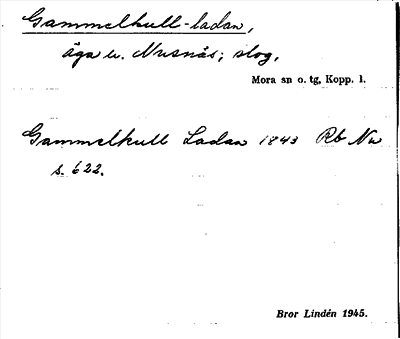 Gammelkull-ladan,
äga u. Nusnäs; slog,
Mora sn o. tg, Kopp. l.
Gammelkull Ladan 1843 Rb Nu
s. 622.
Bror Lindén 1945.